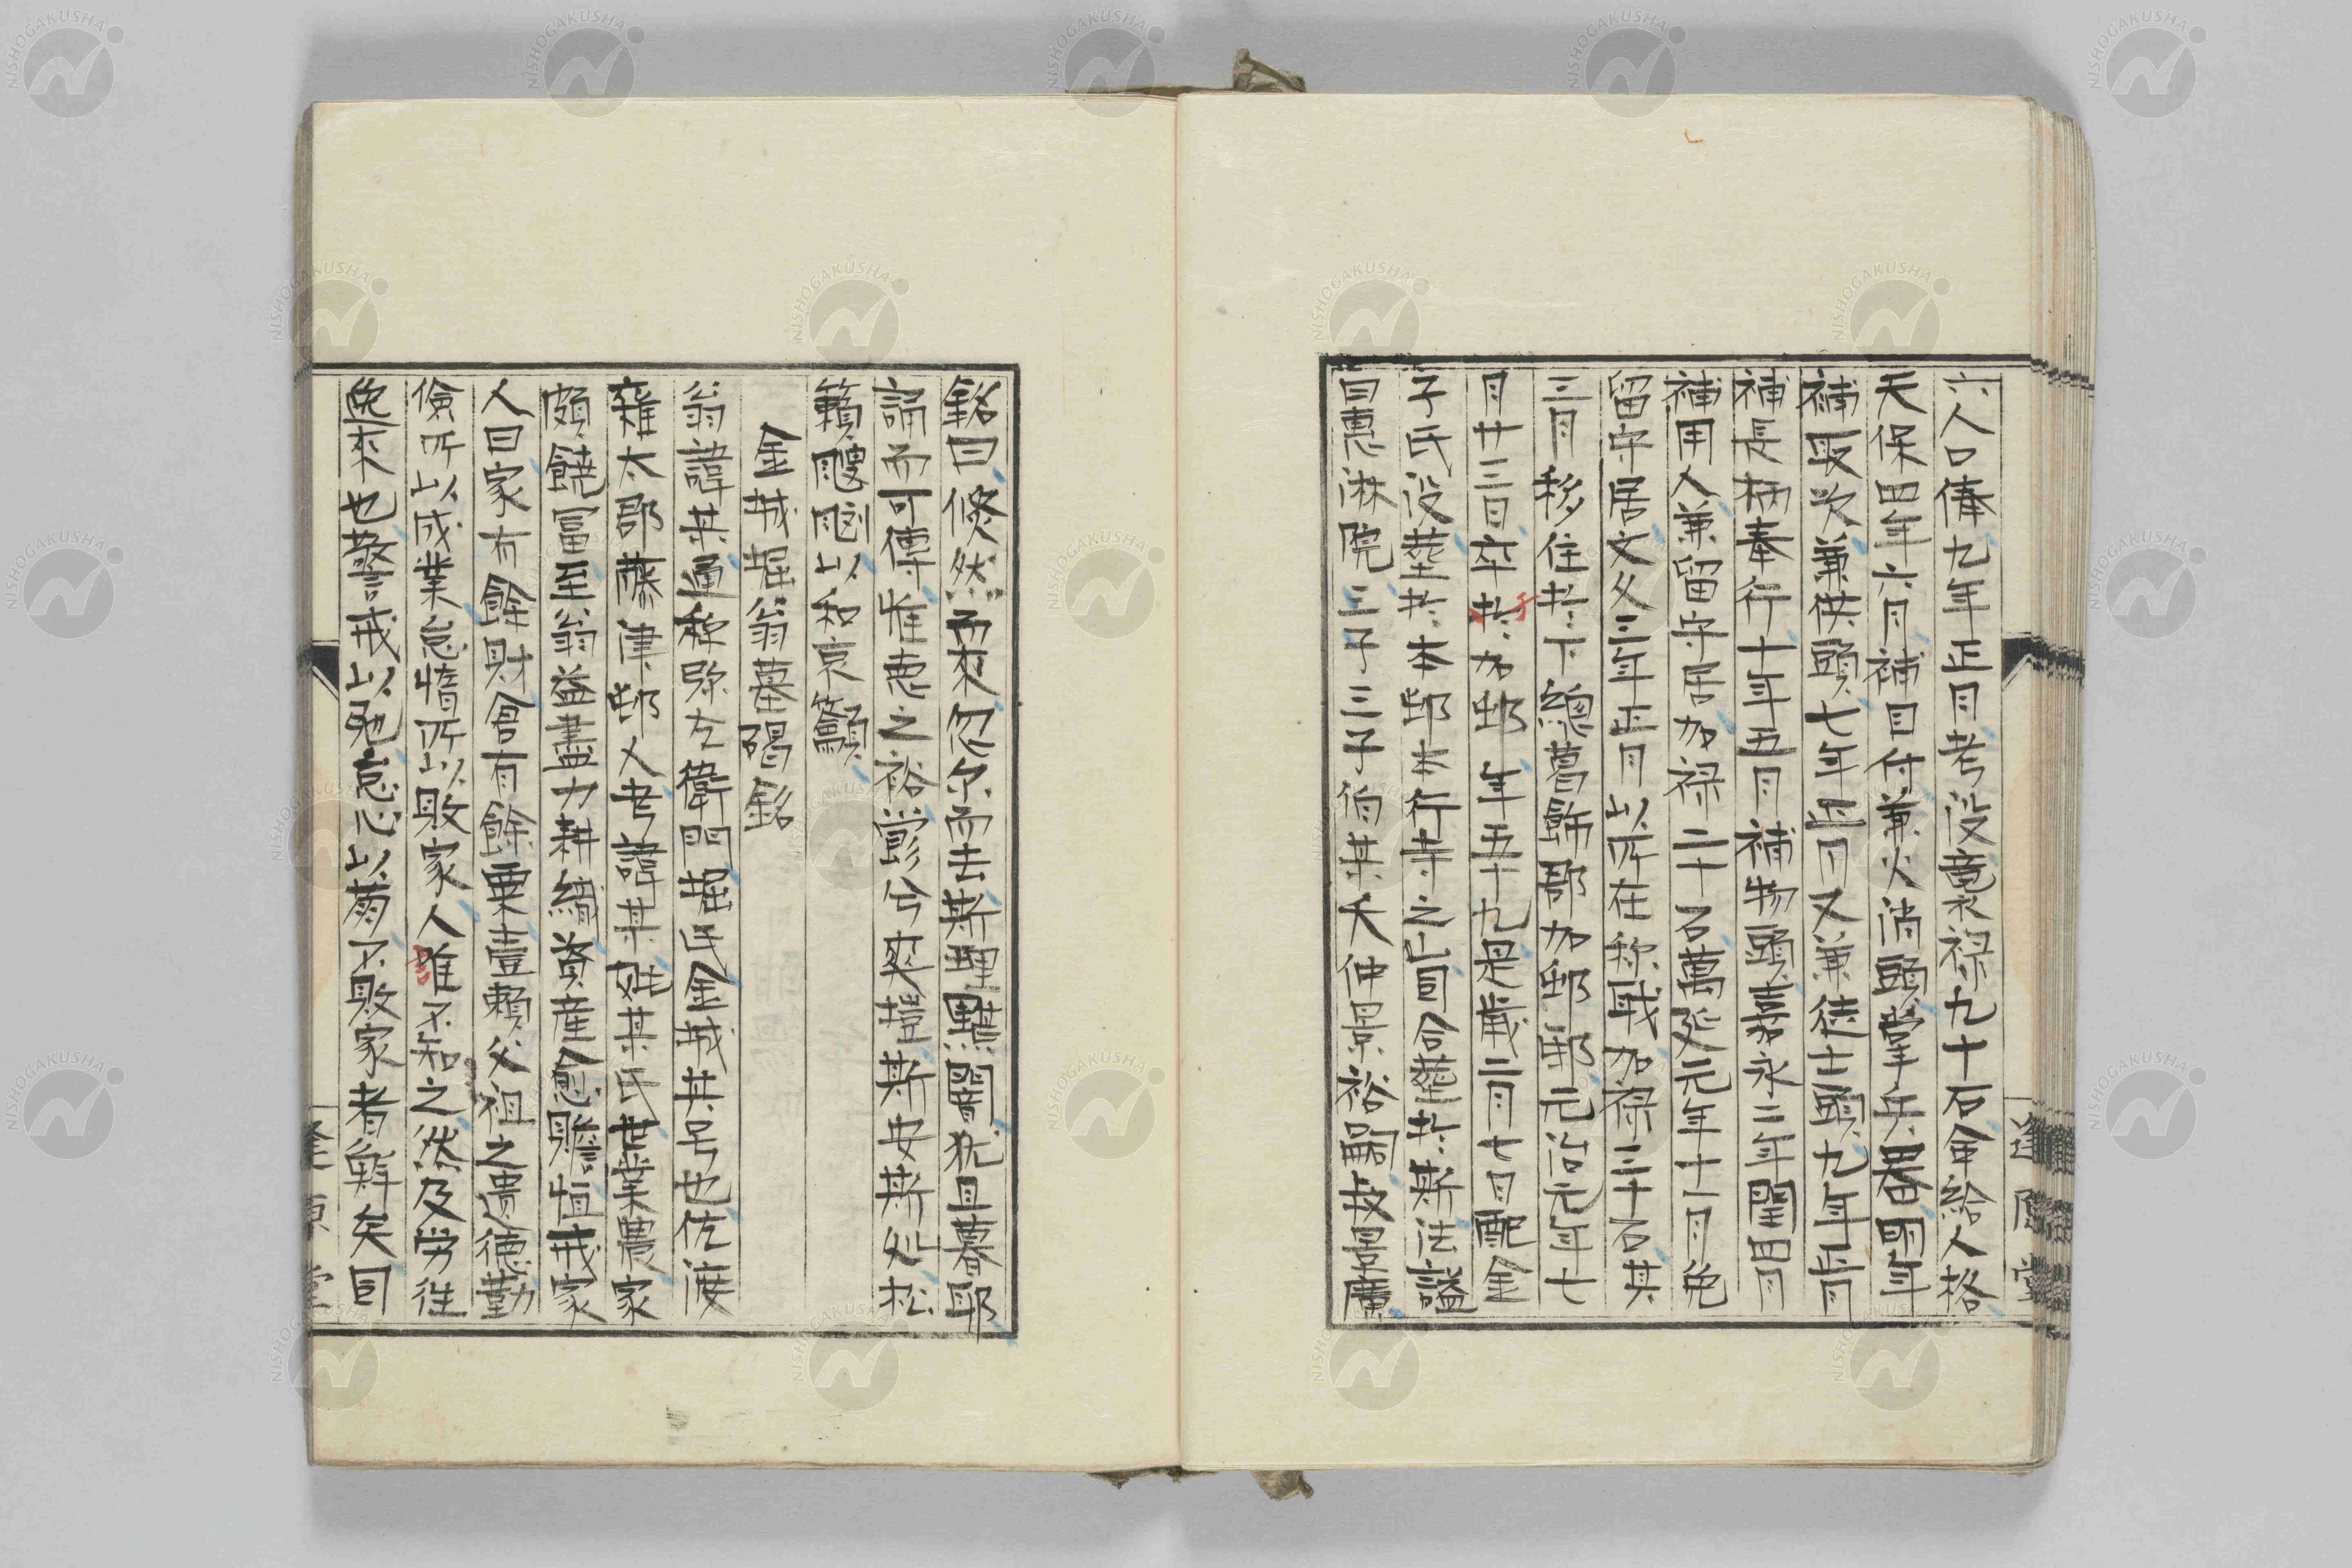 六人口俸九年正月考没襲禄九十石舎給人格
天保四年六月補目付兼火消頭掌兵器明年
補取次兼供頭七年正月又兼徒士頭九年正月
補長柄奉行十年五月補物頭嘉永三年閏四月
補用人兼留守居加禄二十石萬延元年十一月免
留守居文久三年正月以所在称職加禄三十石其
三月移住其下總葛飾郡加邨邸元治元年七
月廿三日卒于加邨年五十九是歳二月七日配金
子氏没葬其本邨本行寺之山回合葬其斯法諡
曰惠淋院三子三子伯某夭仲景裕嗣故景廣
銘曰倏然而來忽尓而去斯理黮闇犹旦暮耶
誦而可傳惟恵之裕嘗兮奕揺斯安斯処松
籟颼飀以和哀籲
金城堀翁墓碣銘
翁諱某通称弥左衛門堀氏金城其号也佐渡
雜太郡藤津邨人考諱某妣某氏世業農家
頗饒冨至翁益盡力耕績資産愈贍恒戒家
人曰家有餘財倉有餘粟壹頼父祖之遺徳勤
儉所以成業怠惰所以敗家人誰不知之然及労徃
逸來也警戒以弛怠心以萠不敗家者鮮矣回
逢原堂
逢原堂